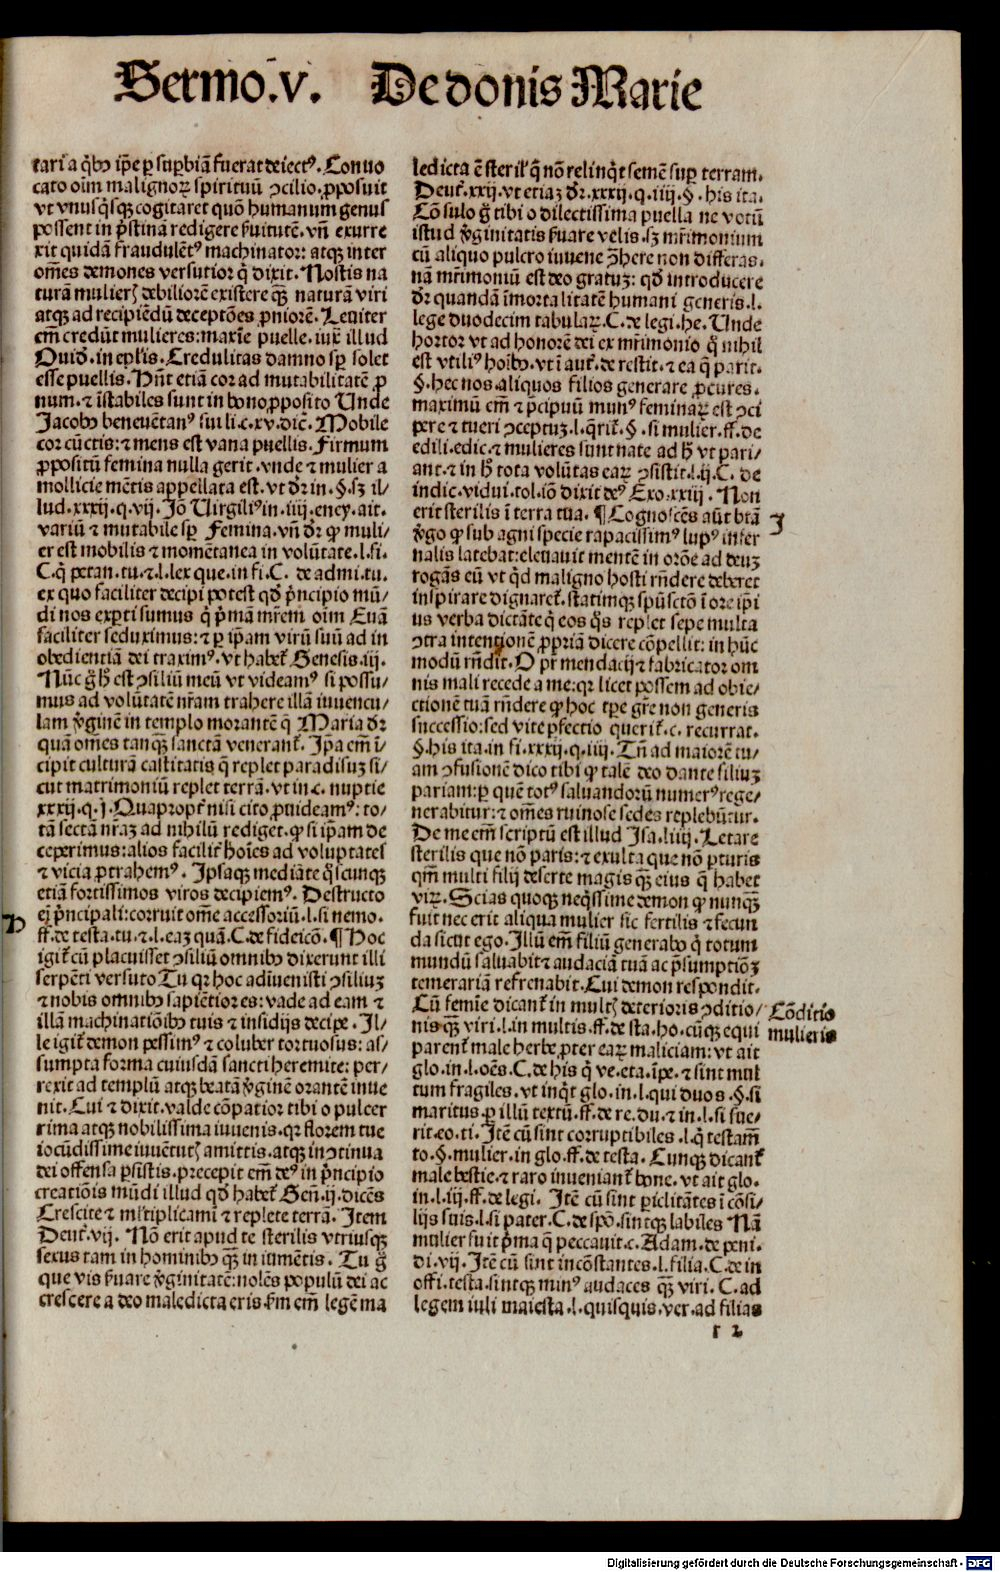 Sermo.v. De donis Marie
tari a q̃bꝰ ip̃e ꝑ suꝑbiã fuerat deiectꝰ. Conuo
cato oĩm malignoꝝ spirituũ ↄcilio.ꝓposuit
vt vnusq̃sqꝫ cogitaret quõ humanum genus
possent in p̃stinã redigere ẜuitutẽ. vñ exurre
xit quidã fraudulẽtꝰ machinator: atqꝫ inter
om̃es demones versutior q̃ dixit. Nostis na
turã mulierꝭ debiliorẽ existere qᷓꝫ naturã viri
atqꝫ ad recipiẽdũ deceptões ꝓniorẽ. Leuiter
em̃ credũt mulieres: maxĩe puelle. iux̃ illud
Ouid̃. in ep̃lis. Credulitas damno sꝑ solet
esse puellis. Hñt etiã cor ad mutabilitatẽ ꝓ
num. ⁊ ĩstabiles sunt in bono ꝓposito Unde
Jacobꝰ beneuẽtanꝰ sui li.c.xv. dic̃. Mobile
cor cũctis: ⁊ mens est vana puellis. Firmum
ꝓpositũ femina nulla gerit. vnde ⁊ mulier a
mollicie mẽtis appellata est. vt dr̃ in .§. sꝫ il⸗
lud. xxxij. q. vij. Jõ Uirgiliꝰ in .iiij. eney. ait.
variũ ⁊ mutabile sꝑ Femina. vñ dr̃ ꝙ muli⸗
er est mobilis ⁊ momẽtanea in volũtate. l. fi.
C. q̃ petan. tu. ⁊ .l. lex que. in fi. C. de admi. tu.
ex quo faciliter decipi potest qd̃ p̃ncipio mũ⸗
di nos exꝑti sumus q̃ p̃mã mr̃em oĩm Euã
faciliter seduximus: ⁊ ꝑ ip̃am virũ suũ ad in
obedientiã dei traximꝰ. vt habet̃ Genesis .iij.
Nũc g̃ h̃ est ↄsiliũ meũ vt videamꝰ si possu⸗
mus ad volũtatẽ nr̃am trahere illã iuuencu⸗
lam ṽginẽ in templo morantẽ q̃ Maria dr̃
quã om̃es tanqᷓꝫ sanctã venerant̃. Ip̃a em̃ ĩ⸗
cipit culturã castitatis q̃ replet paradisuꝫ si⸗
cut matrimoniũ replet terrã. vt in .c. nuptie
xxxij. q. j. Quapropt̃ nisi cito ꝓuideamꝰ: to⸗
tã sectã nr̃aꝫ ad nihilũ rediget. ꝙ si ip̃am de
ceperimus: alios facilit̃ hoĩes ad voluptates
⁊ vicia ꝓtrahemꝰ. Ipsaqꝫ mediãte q̃scunqꝫ
etiã fortissimos viros decipiemꝰ. Destructo
ei̇ p̃ncipali: corruit om̃e accessoriũ. l. si nemo.
ff. de testa. tu. ⁊ .l. eaꝫ quã. C. de fideicõ. ¶ Hoc
igit̃ cũ placuisset ↄsiliũ omnibꝰ dixerunt illi
serpẽti versuto Tu qr̃ hoc adĩuenisti ↄsiliuꝫ
⁊ nobis omnibꝰ sapiẽtior es: vade ad eam ⁊
illã machinatiõibꝰ tuis ⁊ insidijs decipe. Il⸗
le igit̃ demon pessimꝰ ⁊ coluber tortuosus: as⸗
sumpta forma cuiusdã sancti heremite: per⸗
rexit ad templũ atqꝫ beatã ṽginẽ orantẽ inue
nit. Cui ⁊ dixit. valde cõpatior tibi o pulcer
rima atqꝫ nobilissima iuuenis. qr̃ florem tue
iocũdissime iuuẽtutꝭ amittis. atqꝫ in ↄtinua
dei offensa ꝑsistis. precepit em̃ deꝰ in p̃ncipio
creatiõis mũdi illud qd̃ habet̃ Geñ. ij. dicẽs
Crescite ⁊ ml̃tiplicamĩ ⁊ replete terrã. Item
Deut̃. vij. Nõ erit apud te sterilis vtriusqꝫ
sexus tam in hominibꝰ qᷓꝫ in iumẽtis. Tu g̃
que vis ẜuare ṽginitatẽ: nolẽs populũ dei ac
crescere a deo maledicta eris. ẜm em̃ legẽ ma
P
ledicta ẽ steril̃ q̃ nõ relinq̃t semẽ suꝑ terram.
Deut̃. xxij. vt etiaꝫ dr̃. xxxij. q. iiij. §. his ita.
Cõsulo g̃ tibi o dilectissima puella ne votũ
istud ṽginitatis ẜuare velis. sꝫ mr̃imonium
cũ aliquo pulcro iuuene ↄ̃here non differas.
nã mr̃imoniũ est deo gratuꝫ: qd̃ introducere
dr̃ quandã ĩmortalitatẽ humani generis. l.
lege duodecim tabulaꝝ. C. de legi. he. Unde
hortor vt ad honorẽ dei ex mr̃imonio q̃ nihil
est vtiliꝰ hoĩbꝰ. vt ĩ aut̃. de restit. ⁊ ea q̃ parit.
§. hec nos. aliquos filios generare ꝓcures.
maximũ em̃ ⁊ p̃cipuũ munꝰ feminaꝝ est ↄci
pere ⁊ tueri ↄceptuꝫ. l. q̃rit̃. §. si mulier. ff. de
edili. edic. ⁊ mulieres sunt nate ad h̃ vt pari⸗
ant. ⁊ in h̃ tota volũtas eaꝝ ↄsistit. l. ij. C. de
indic. vidui. tol. iõ dixit deꝰ Exo. xxiij. Non
erit sterilis ĩ terra tua. ¶ Cognoscẽs aũt btã
ṽgo ꝙ sub agni specie rapacissimꝰ lupꝰ infer
nalis latebat: eleuauit mentẽ in orõe ad deuꝫ
rogãs eũ vt q̃d maligno hosti rñdere deberet
inspirare dignaret̃. statimqꝫ spũsctõ ĩ ore ip̃i
us verba dictãte q̃ eos q̃s replet sepe multa
ↄtra intentionẽ ꝓpriã dicere cõpellit: in hũc
modũ rñdit. O pr̃ mendacij ⁊ fabricator om
nis mali recede a me: qr̃ licet possem ad obie⸗
ctionẽ tuã rñdere ꝙ hoc tp̃e gr̃e non generis
successio: sed vite ꝑfectio querit̃. c. recurrat.
§. his ita. in fi. xxxij. q. iiij. Tñ ad maiorẽ tu⸗
am ↄfusionẽ dico tibi ꝙ talẽ deo dante filiuꝫ
pariam: ꝑ quẽ totꝰ saluandorũ numerꝰ rege⸗
nerabitur: ⁊ om̃es ruinose sedes replebũtur.
De me em̃ scriptũ est illud Isa. liiij. Letare
sterilis que nõ paris: ⁊ exulta que nõ ꝑturis
qm̃ multi filij deserte magis qᷓꝫ eius q̃ habet
viꝝ. Scias quoqꝫ neq̃ssime demon ꝙ nunqᷓꝫ
fuit nec erit aliqua mulier sic fertilis ⁊ fecun
da sicut ego. Illũ em̃ filiũ generabo q̃ totum
mundũ saluabit ⁊ audaciã tuã ac p̃sumptiõꝫ
temerariã refrenabit. Cui demon respondit.
Cũ femĩe dicant̃ in multꝭ deterioris ↄditio⸗
nis qᷓꝫ viri. l. in multis. ff. de sta. ho. cũqꝫ equi
parent̃ male herbe ꝓpter eaꝝ maliciam: vt ait
glo. in .l. oẽs. C. de his q̃ ve. eta. ĩpe. ⁊ sint mul
tum fragiles. vt inq̃t glo. in .l. qui duos. §. si
maritus. ꝑ illũ textũ. ff. de re. du. ⁊ in .l. si fue⸗
rit. eo. ti. Itẽ cũ sint corruptibiles. l. q̃ testam̃
to. §. mulier. in glo. ff. de testa. Cunqꝫ dicant̃
male bestie. ⁊ raro inueniant̃ bone. vt ait glo.
in .l. iij. ff. de legi. Itẽ cũ sint ꝑiclitãtes ĩ cõsi⸗
lijs suis. l. si pater. C. de spõ. sintqꝫ labiles Nã
mulier fuit p̃ma q̃ peccauit. c. Adam. de peni.
di. vij. Itẽ cũ sint incõstantes. l. filia. C. de in
offi. testa. sintqꝫ minꝰ audaces qᷓꝫ viri. C. ad
legem iuli maiesta. l. quisquis. ver. ad filias
J
Cõditio
mulieris
r 2
Digitalisierung gefördert durch die Deutsche Forschungsgemeinschaft - DFG